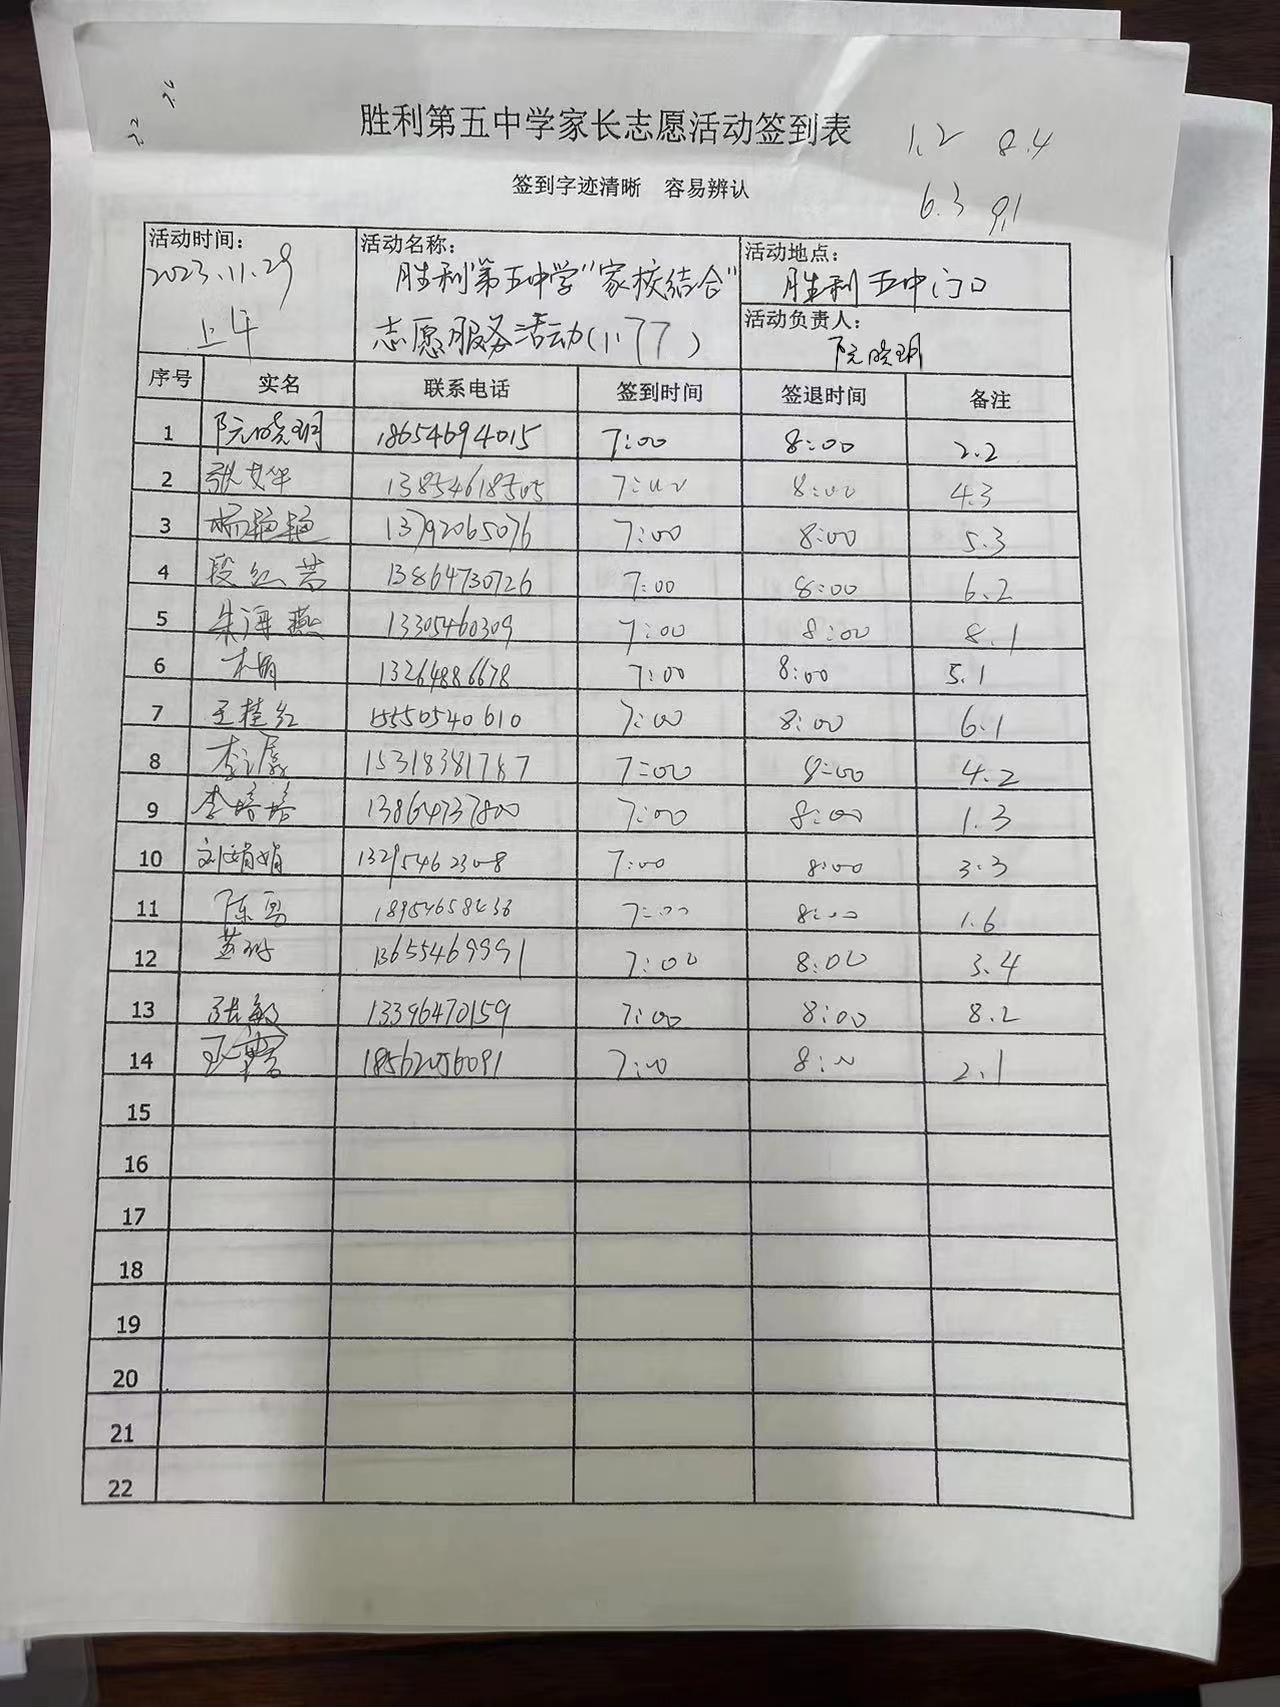 胜利第五中学家长志愿活动签到表
1.2 8.4
签到字迹清晰 容易辨认
6.3 9.1
活动时间: 活动名称: 活动地点:
2023.11.29 胜利第五中学"家校结合" 胜利五中门口
上午 志愿服务活动(1:77) 活动负责人:
阮晓玥
序号 实名 联系电话 签到时间 签退时间 备注
1 阮晓玥 18654694015 7:00 8:00 2.2
2 13854618505 7:00 8:00 4.3
3 杨艳艳 13792065076 7:00 8:00 5.3
4 13864730726 7:00 8:00 6.2
5 朱海燕 13305460309 7:00 8:00 8.1
6 13264886678 7:00 8:00 5.1
7 王桂红 15550540610 7:00 8:00 6.1
8 15318381787 7:00 8:00 4.2
9 李培培 13864737800 7:00 8:00 1.3
10 刘娟娟 13295462308 7:00 8:00 3.3
11 陈勇 18954658436 7:00 8:00 1.6
12 13655469991 7:00 8:00 3.4
13 张敏 13396470159 7:00 8:00 8.2
14 18562056091 7:00 8:00 2.1
15
16
17
18
19
20
21
22